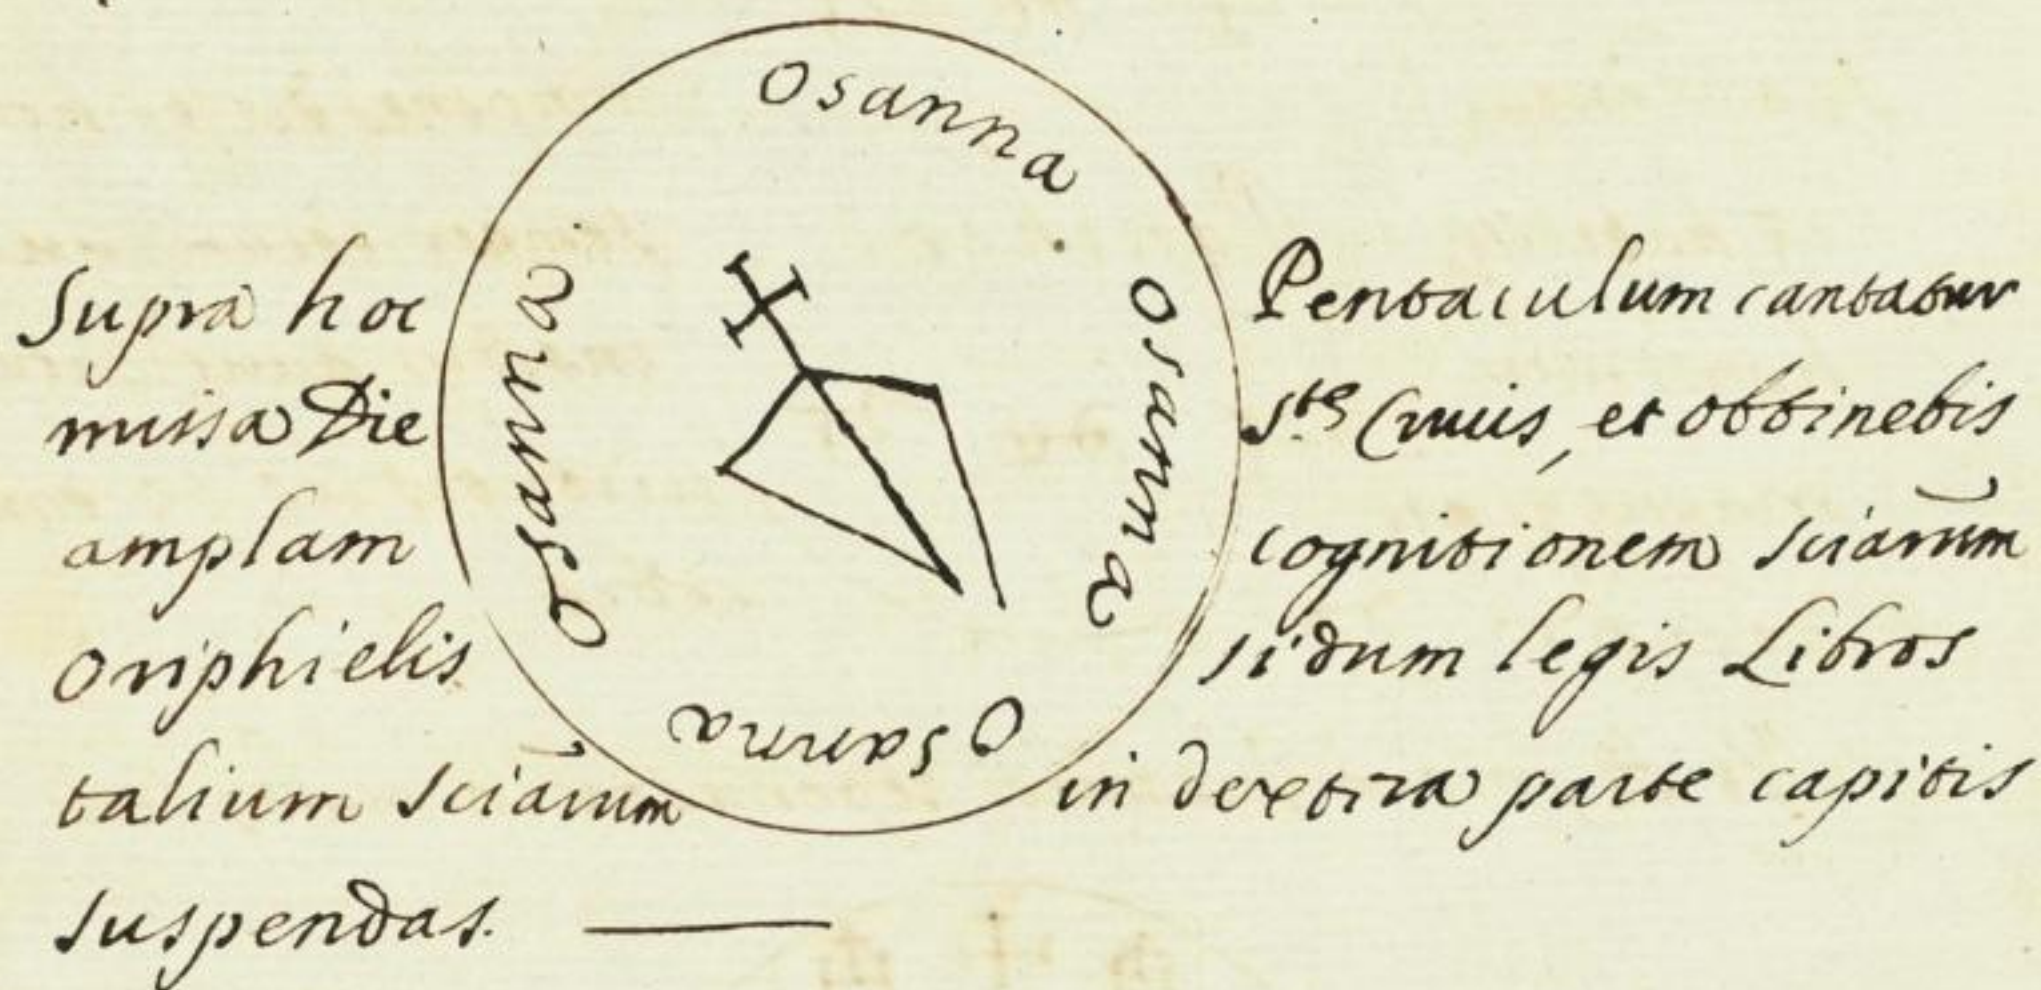 Osanna
Osanna
Osanna
Osanna
Supra hoc Pentaculum cantatur
missa Die S.te Crucis, et obtinebis
amplam cognitionem sciarum
Oriphielis, si dum legis Libros
talium sciarum in dextra parte capitis
suspendas.